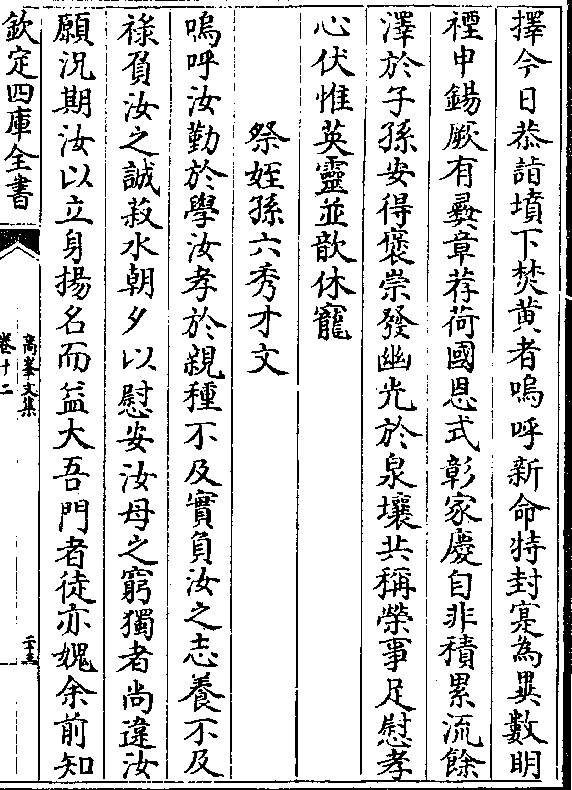 擇今日恭詣墳下焚黄者嗚呼新命特封寔為異數明
禋申錫厥有彞章荐荷國恩式彰家慶自非積累流餘
澤於子孫安得褒崇發幽光於泉壤共稱榮事足慰孝
心伏惟英靈並歆休寵
祭姪孫六秀才文
嗚呼汝勤於學汝孝於親種不及實負汝之志養不及
祿負汝之誠菽水朝夕以慰安汝母之窮獨者尚違汝
願況期汝以立身揚名而益大吾門者徒亦媿余前知
欽定四庫全書
高峯文集
卷十二
二十五